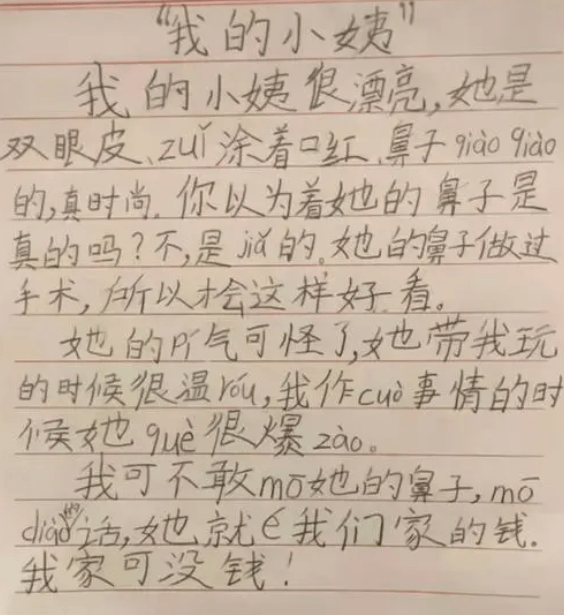 “我的小姨”
我的小姨很漂亮,她是
双眼皮、zuǐ涂着口红、鼻子qiào qiào
的,真时尚.你以为着她的鼻子是
真的吗?不,是jiǎ的。她的鼻子做过
手术,所以才会这样好看。
她的pí气可怪了,她带我玩
的时候很温róu,我作cuò事情的时
候她què很爆zào。
我可不敢mō她的鼻子,mō
diào的话,她就e我们家的钱.
我家可没钱!